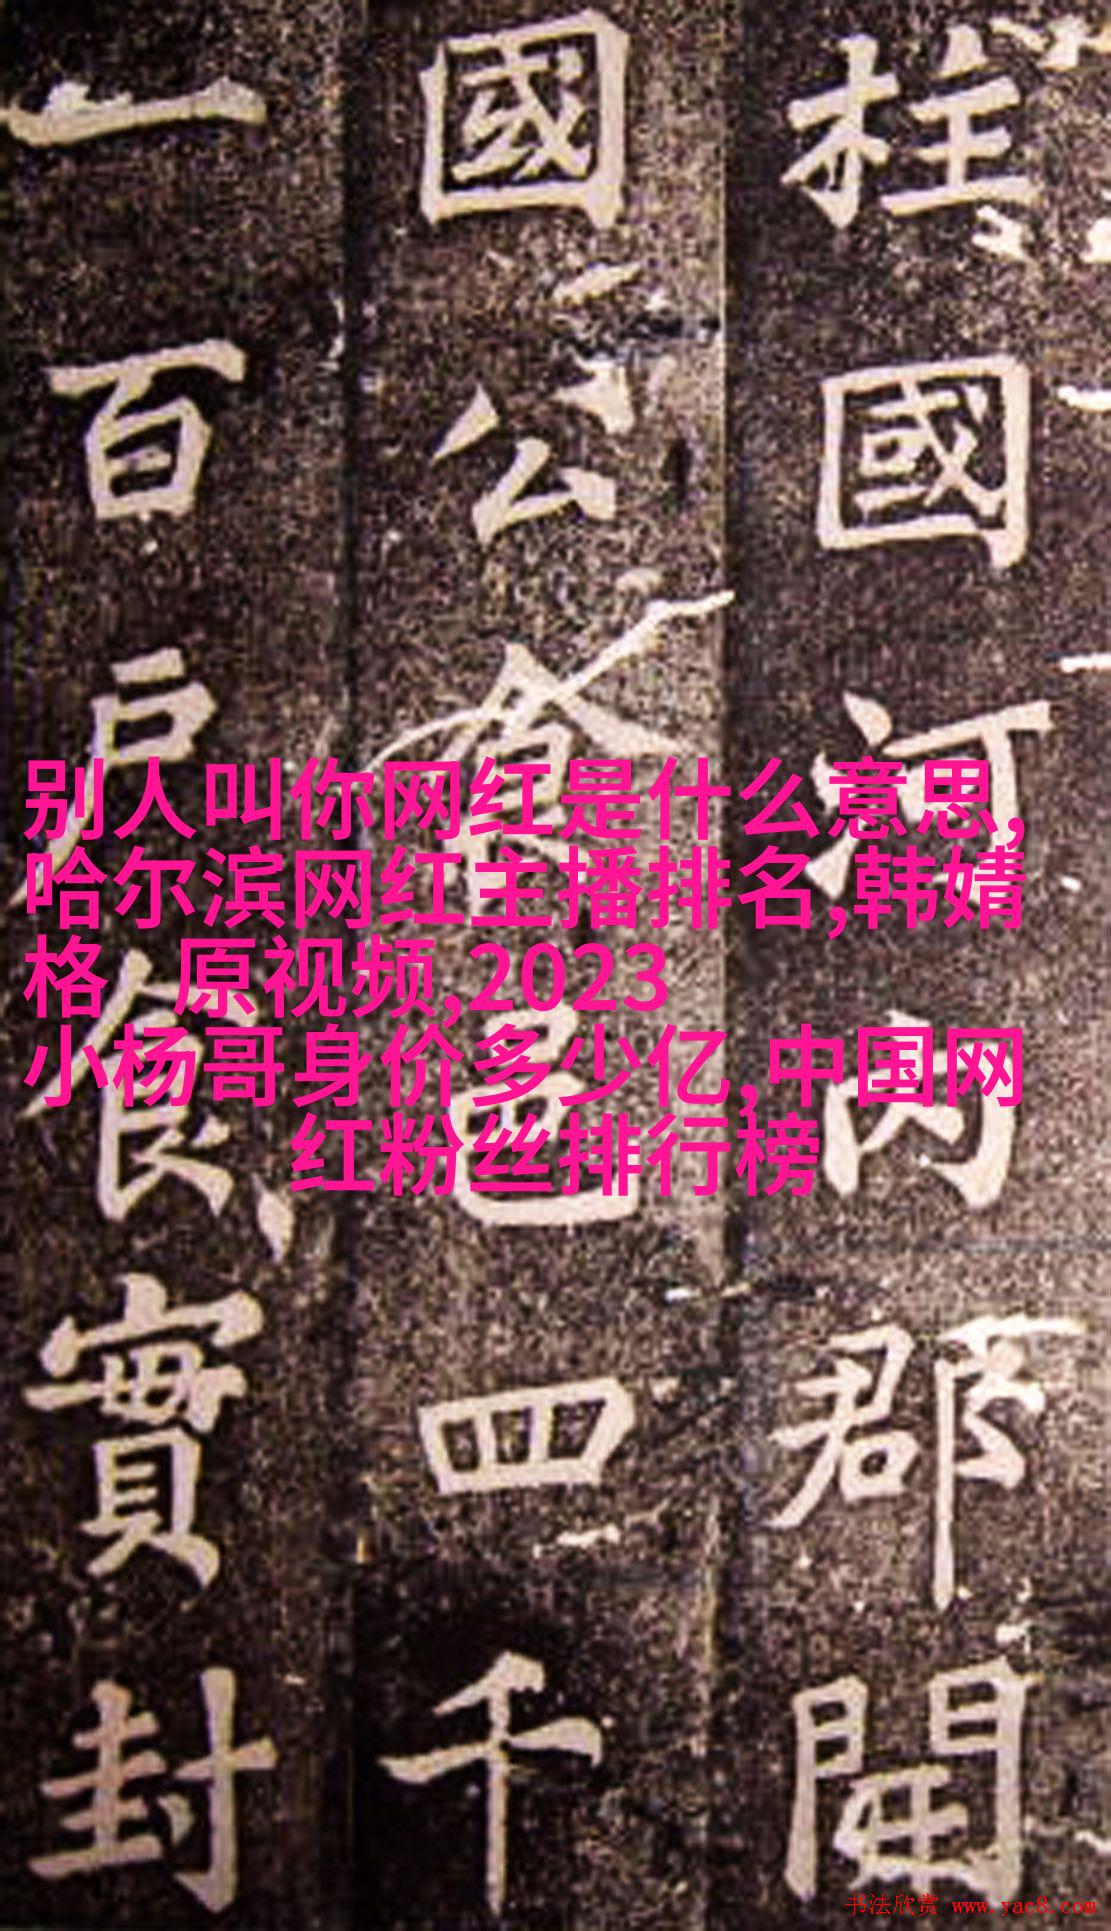 柱國河內郡開
國公食邑四千
一百戶食實封
别人叫你网红是什么意思,
哈尔滨网红主播排名,韩婧
格 原视频,2023
小杨哥身价多少亿,中国网
红粉丝排行榜
书法欣赏 www.yac8.com